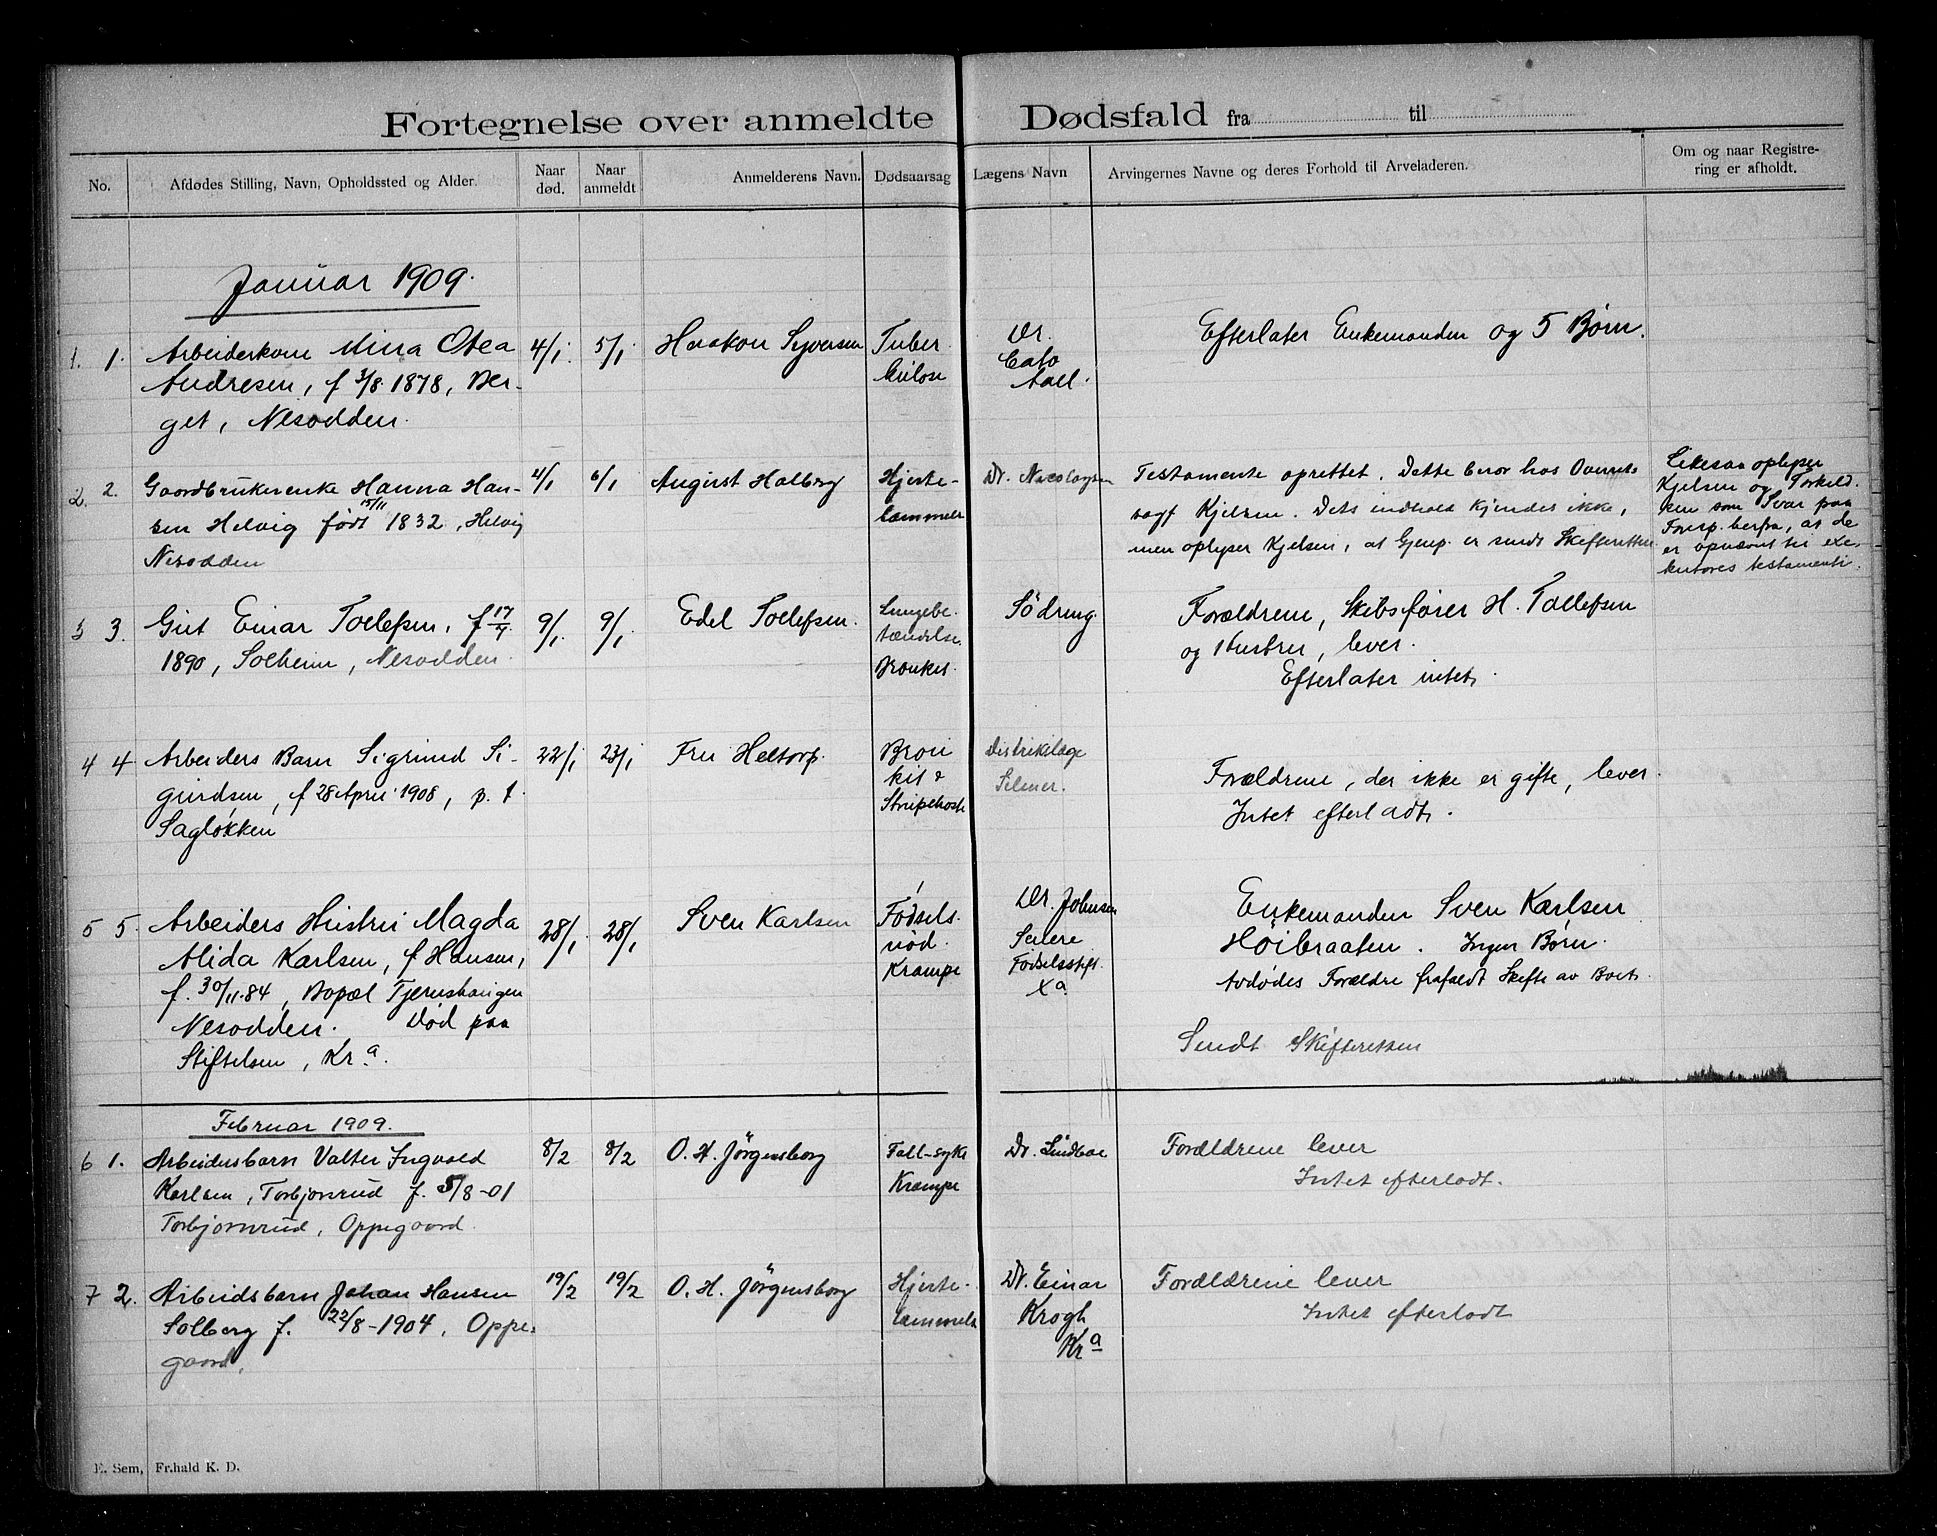 Fortegnelse over anmeldte Dødsfald fra til
No. Afdødes Stilling, Navn, Opholdssted og Alder. Naar død. Naar anmeldt Anmelderens Navn. Dødsaarsag Lægens Navn Arvingernes Navne og deres Forhold til Arveladeren. Om og naar Registrering er afholdt.
Januar 1909.
1. 1. Arbeiderkone Mina Otea 4/1 5/1 Haakon Syversen Tuber Dr. Efterlater Enkemanden og 5 Børn.
Andresen, f 3/8 1878, Ber- kulose Cato
get, Nesodden. Aall.
2. 2. Gaardbrukerenke Hanna Han- 4/1 6/1 August Halberg Hjerte- Dr. Testamente oprettet. Dette beror hos Overrets
sen Helvig født 15/11 1832, Helvig lammelse sagf Kjelsen. Dets indhold kjendes ikke,
Nesodden men oplyser Kjelsen, at Gjenp. er sendt Skifteretten
Likesaa oplyser
Kjelsen og Torkild-
sen som Svar paa
Foresp. herfra, at de
er opnævnt til exe-
kutores testamenti.
3 3. Gut Einar Tollefsen, f 17/9 9/1 9/1 Edel Tollefsen. Lungebe- Södring Forældrene, Skibsfører H. Tollefsen
1890, Solheim, Nesodden. tændelse og Hustru, lever.
Bronkit. Efterlater intet.
4 4 Arbeiders Barn Sigrund Si- 22/1 23/1 Fru Heltorp. Bron Distriktslæge
gurdsen, f 28 April 1908, p. t. kit & Selmer. Forældrene, der ikke er gifte, lever.
Sagløkken Strupehoste Intet efterladt.
5 5. Arbeiders Hustru Magda 28/1 28/1 Sven Karlsen Fødsels- Dr. Johnsen Enkemanden Sven Karlsen
Alida Karlsen, f Hansen, nød. Høibraaten. Ingen Børn.
f. 30/11-84, Bopæl Tjernshaugen Krampe Fødselsstift. Avdødes Forældre frafaldt Skifte av Boet.
Nesodden. Død paa Kra
Stiftelsen, Kra. Sendt Skifteretten
Februar 1909.
6 1. Arbeidersbarn Valter Ingvald 8/2 8/2 O. H. Jörgensborg Fall-syke Dr. Lindboe Forældrene lever
Karlsen, Torbjørnrud f. 5/8-01 Krampe Intet efterladt.
Torbjørnrud, Oppegaard.
7 2. Arbeidsbarn Johan Hansen 19/2 19/2 O. H. Jörgensborg Hjerte- Dr. Einar Forældrene lever
Solberg f. 22/8-1904, Oppe- lammelse Krogh Intet efterladt
gaard. Kra
E. Sem, Fr.hald K. D.